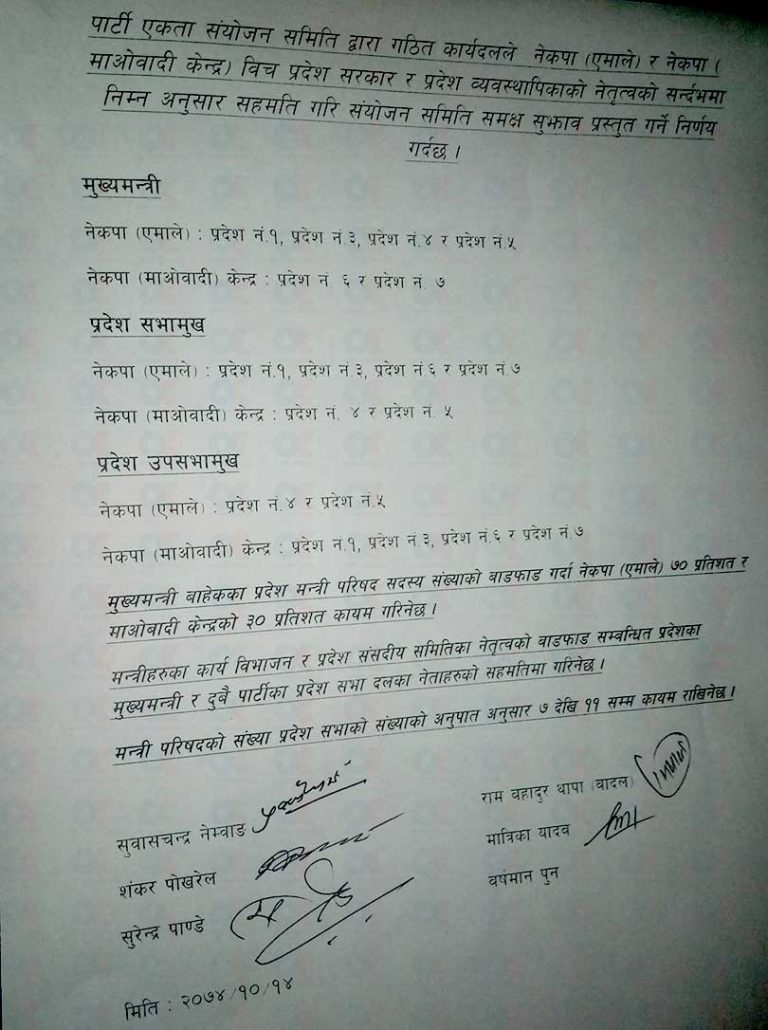 पार्टी एकता संयोजन समिति द्वारा गठित कार्यदलले नेकपा (एमाले) र नेकपा (
माओवादी केन्द्र) विच प्रदेश सरकार र प्रदेश व्यवस्थापिकाको नेतृत्वको सर्न्दभमा
निम्न अनुसार सहमति गरि संयोजन समिति समक्ष सुझाव प्रस्तुत गर्ने निर्णय
गर्दछ ।
मुख्यमन्त्री
नेकपा (एमाले) : प्रदेश नं.१, प्रदेश नं.३, प्रदेश नं.४ र प्रदेश नं.५
नेकपा (माओवादी) केन्द्र : प्रदेश नं. ६ र प्रदेश नं. ७
प्रदेश सभामुख
नेकपा (एमाले) : प्रदेश नं.१, प्रदेश नं.३, प्रदेश नं.६ र प्रदेश नं.७
नेकपा (माओवादी) केन्द्र : प्रदेश नं. ४ र प्रदेश नं. ५
प्रदेश उपसभामुख
नेकपा (एमाले) : प्रदेश नं.४ र प्रदेश नं.५
नेकपा (माओवादी) केन्द्र : प्रदेश नं.१, प्रदेश नं.३, प्रदेश नं.६ र प्रदेश नं.७
मुख्यमन्त्री बाहेकका प्रदेश मन्त्री परिषद सदस्य संख्याको बाडफाड गर्दा नेकपा (एमाले) ७० प्रतिशत र
माओबादी केन्द्रको ३० प्रतिशत कायम गरिनेछ ।
मन्त्रीहरुका कार्य विभाजन र प्रदेश संसदीय समितिका नेतृत्वको वाडफाड सम्बन्धित प्रदेशका
मुख्यमन्त्री र दुबै पार्टीका प्रदेश सभा दलका नेताहरुको सहमतिमा गरिनेछ ।
मन्त्री परिषदको संख्या प्रदेश सभाको संख्याको अनुपात अनुसार ७ देखि ११ सम्म कायम राखिनेछ ।
सुवासचन्द्र नेम्वाङ
राम वहादुर थापा (वादल)
शंकर पोखरेल
मात्रिका यादव
सुरेन्द्र पाण्डे
वर्षमान पुन
मिति : २०७४/१०/१४